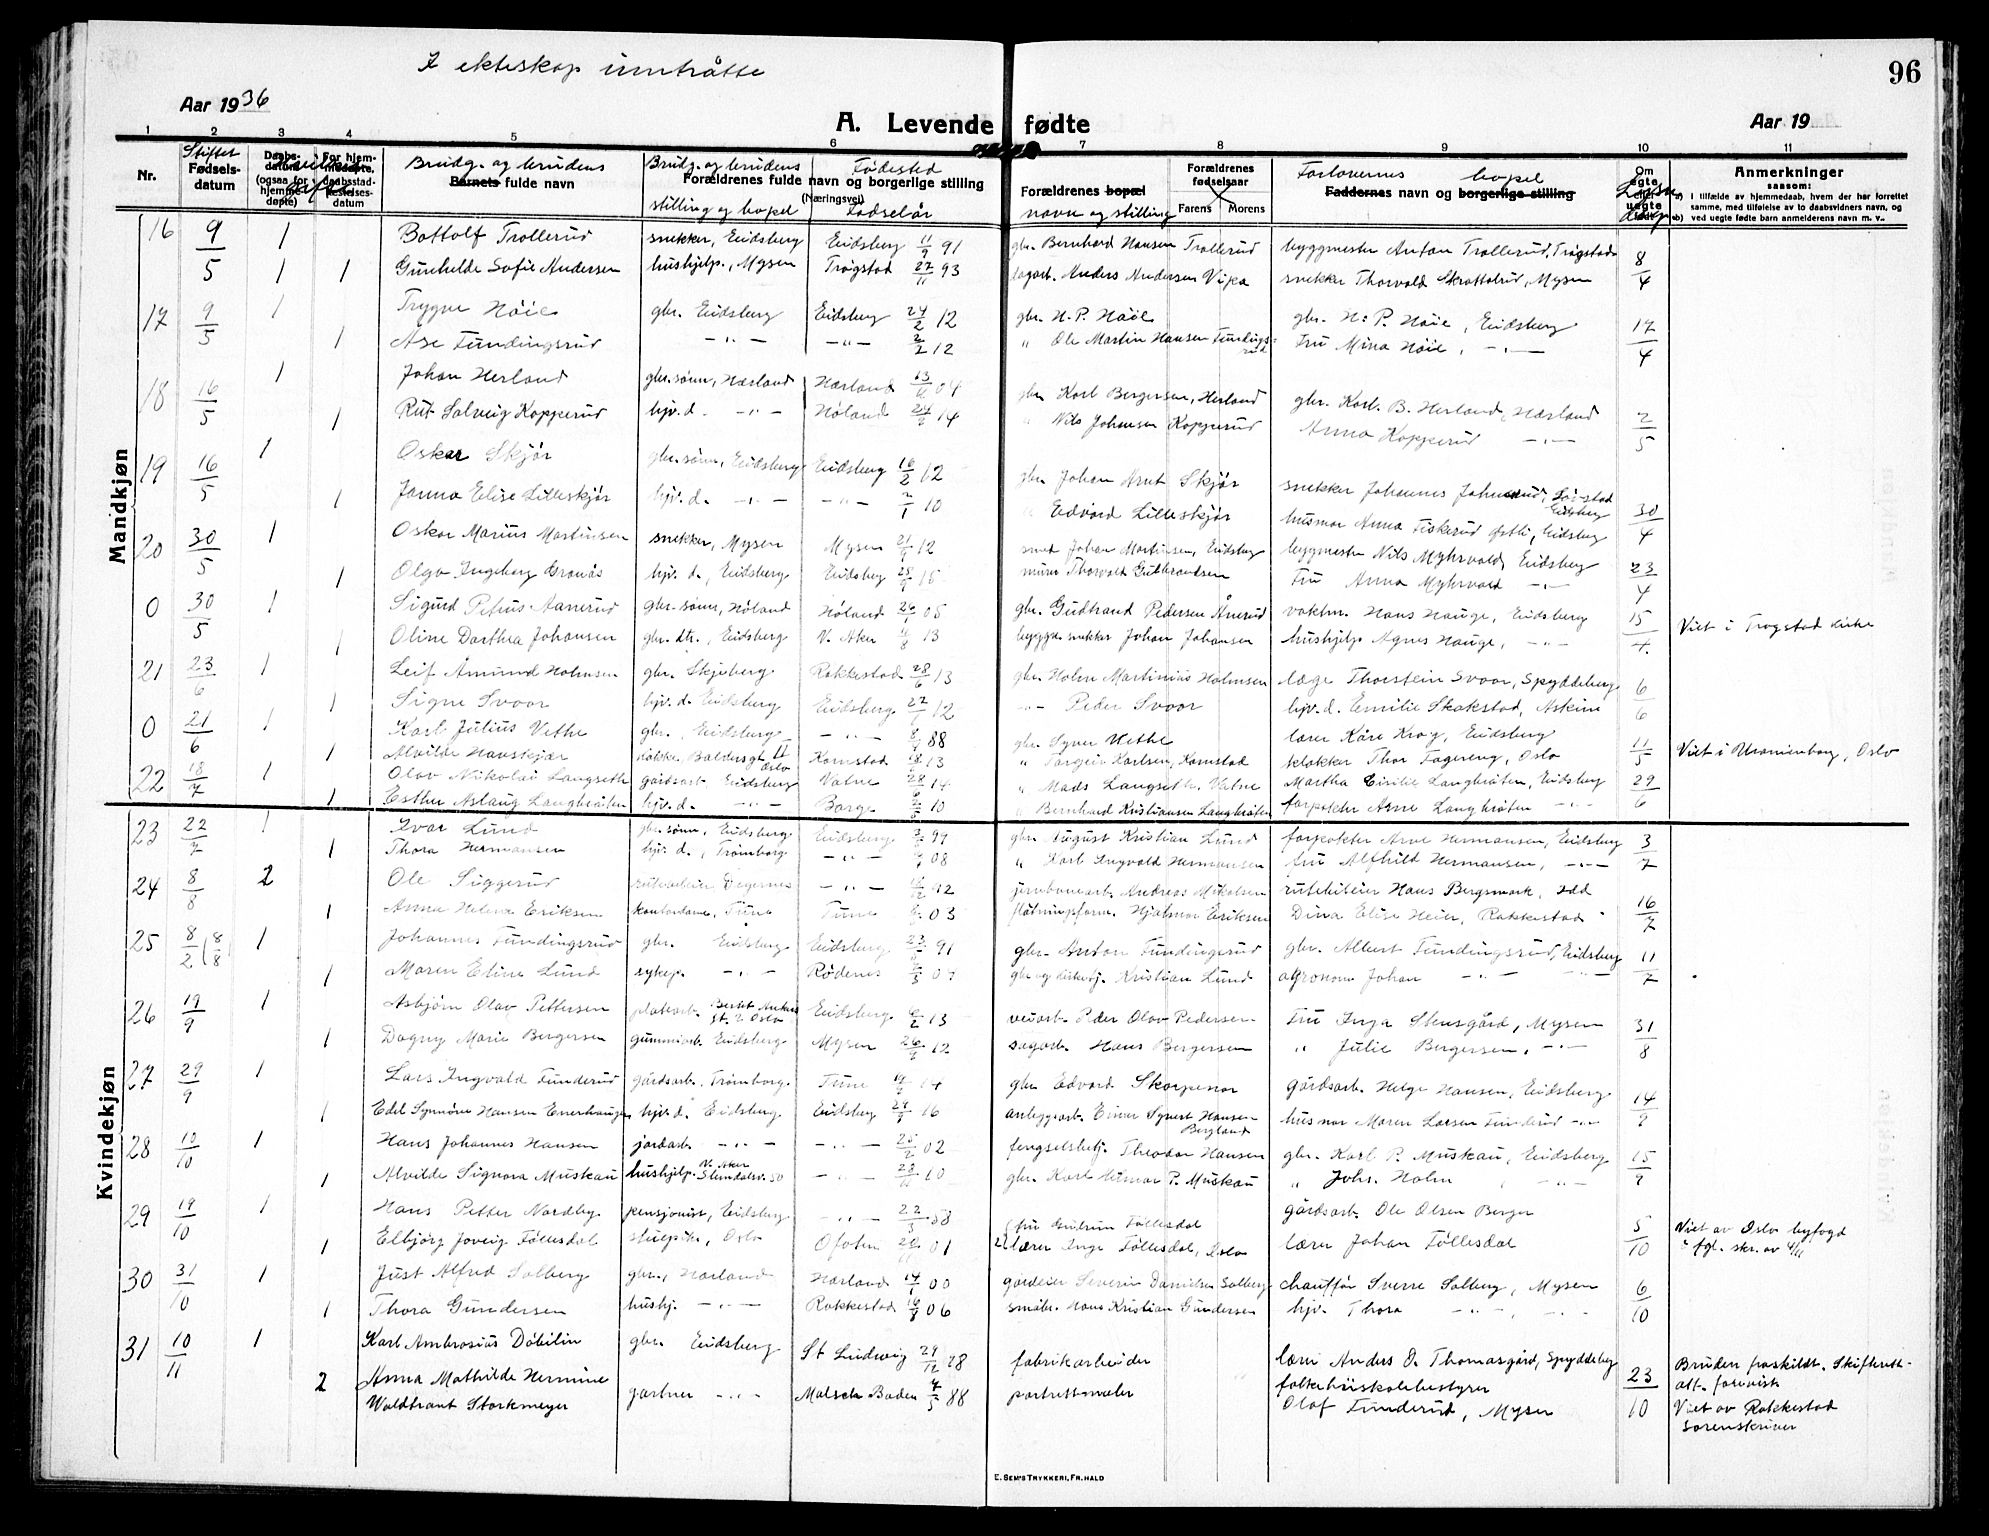 I ekteskap inntrådte
96
Aar 1936
A. Levende fødte
Aar 19
1 2 3 4 5 6 7 8 9 10 11
Nr.
Stiftet
Fødsels-
datum
Daabs-
datum
(ogsaa for
hjemme-
døpte)
For hjem-
medøpte,
daabsstad-
festelses-
datum
Brudg. og brudens
Barnets fulde navn
Brudg. og brudens
Fødested
Forældrenes fulde navn og borgerlige stilling
(Næringsvei)
stilling og bopel
Fødselår
Forældrenes bopæl
navn og stilling
Forældrenes
fødselsaar
Farens Morens
Forlovernes bopel
Faddernes navn og borgerlige stilling
Om
egte
eller
uegte
Lysn.
dag
Anmerkninger
saasom:
a) I tilfælde av hjemmedaab, hvem der har forrettet
samme, med tilføielse av to daabsvidners navn, og
b) ved uegte fødte barn anmelderens navn m. v..
Mandkjøn
16 9/5 1 Bottolf Trollerud snekker, Eidsberg Eidsberg 11/9 91 gbr. Bernhard Hansen Trollerud byggmester Anton Trollerud, Trøgstad 8/4
1 1 Gunhilde Sofie Andersen hushjelp, Mysen Trøgstad 27/11 93 sagarb. Anders Andersen Vika snekker Thorvald Skrattelrud, Mysen
17 9/5 1 Trygve Høie gbr. Eidsberg Eidsberg 24/2 12 gbr. H. P. Høie gbr. H. P. Høie, Eidsberg 17/4
1 Ase Fundingsrud -"- -"- 2/2 12 " Ole Martin Hansen Fundings-
rud fru Mina Høie, -"-
18 16/5 1 Johan Herland gbr. sønn, Hærland Hærland 13/6 04 gbr. Karl Bergersen, Herland gbr. Karl B. Herland, Hærland 2/5
1 Rut Solveig Kopperud hjv. d. -"- Høland 24/2 14 " Nils Johansen Kopperud Anna Kopperud -"-
19 16/5 1 Oskar Skjør gbr. sønn, Eidsberg Eidsberg 16/2 12 gbr. Johan Arnt Skjør snekker Johannes 30/4
Eidsberg
1 Janna Elise Lilleskjør hjv. d. -"- -"- 2/1 10 " Edvard Lilleskjør husmor Anna Fiskerud Østli, Eidsberg
20 30/5 1 Oskar Marius Martinsen snekker, Mysen Mysen 12 smed Johan Martinsen, Eidsberg byggmester Nils Myhrvold, Eidsberg 23/4
1 Olga Ingeborg Granås hjv. d., Eidsberg Eidsberg 15 murer Thorvald Gulbrandsen fru Anna Myhrvold -"-
0 30/5 1 Sigurd Petrus Aanerud gbr. sønn, Høland Høland 05 gbr. Gudbrand Pedersen Ånerud vaktm. Hans Hauge, Eidsberg 15/4 Viet i Trøgstad kirke
1 Oline Dorthea Johansen gbr. dtr., Eidsberg V. Aker 13 byggn. snekker Johan Johansen hushjelp Agnes Hauge, -"-
21 23/6 1 Leif Åmund Holmsen gbr. Skjeberg Rakkestad 28/6 13 gbr. Holm Martinius Holmsen læge Thorstein Svoor, Spydeberg 6/6
1 Signe Svoor hjv. d. Eidsberg Eidsberg 12 -"- Peder Svoor hjv. d. Emilie Skakstad, Askim
0 21/6 1 Karl Julius Vethe gbr., Eidsberg -"- 88 gbr. Syver Vethe lærer Kåre Krog, Eidsberg 11/5 Viet i Uranienborg, Oslo
1 Alvilde Hauskjær Baldersgt. 11
Oslo Kornstad 13 " Karlsen, Kornstad klokker Thor Fagereng, Oslo
22 18/7 1 Olav Nikolai Langseth gårdsarb. Eidsberg Vatne 28 14 " Mads Langseth, Vatne Martha Cisilie Langbråten, Eidsberg 29/6
1 Esther Aslaug Langbråten hjv. d. -"- Borge 10 " Bernhard Kristiansen Langbråten forpakter Arne Langbråten -"-
Kvindekjøn
23 22/7 1 Ivar Lund gbr. sønn, Eidsberg Eidsberg 99 gbr. August Kristian Lund forpakter Arne Hermansen, Eidsberg 3/7
1 Thora Hermansen hjv. d., Trømborg -"- 08 " Karl Ingvald Hermansen fru Alfhild Hermansen, -"-
24 8/8 2 Ole Siggerud ruteeier Degernes -"- 02 jernbanearb. Andreas Mikalsen rutebileier Hans Bergsmark, Idd 16/7
1 Anna Helene Eriksen kontordame, Tune Tune 03 fløtningsform. Hjalmar Eriksen Dina Elise Heier, Rakkestad
25 8/2 (8/8) 1 Johannes Fundingsrud gbr. Eidsberg Eidsberg 91 gbr. Anton Fundingsrud gbr. Albert Fundingsrud, Eidsberg 11/7
1 Maren Eline Lund sykepl. -"- Rødenes 07 Kristian Lund agronom Johan -"-
26 19/9 1 Asbjørn Olav Pettersen platearb. Bernt Ankers
gt. 2 Oslo Eidsberg 13 veiarb. Peder Olav Pedersen fru Inga Stensgård, Mysen 31/8
1 Dagny Marie Bergersen gummiarb. Eidsberg Mysen 26/9 12 sagarb. Hans Bergersen " Julie Bergersen, -"-
27 29/9 1 Lars Ingvald Funderud gårdsarb. Trømborg Tune 14 gbr. Edvard Skorpenor gårdsarb. Helge Hansen, Eidsberg 14/9
1 Edel Synnøve Hansen Enerhaugen hjv. d. Eidsberg Eidsberg 16 anleggsarb. Einar Syvert Hansen
Bergland husmor Maren Larsen Funderud -"-
28 10/10 1 Hans Johannes Hansen jordarb. -"- -"- 02 fengselsbetj. Theodor Hansen gbr. Karl P. Muskau, Eidsberg 15/9
1 Alvilde Signora Muskau hushjelp V. Aker
Slemdalsv. 50 -"- 10 gbr. Karl Hilmar P. Muskau " Johs. Holm -"-
29 19/10 1 Hans Petter Nordby pensjonist, Eidsberg -"- 22/3 58 fru Gudrun Føllesdal gårdsarb. Ole Olsen Berger 5/10 Viet av Oslo byfogd
1 Elbjørg Joveig Føllesdal stuepike, Oslo Ofoten 01 lærer Inge Føllesdal, Oslo lærer Johan Føllesdal flg. skr. av 4/11
30 31/10 1 Just Alfred Solberg gbr., Hærland Hærland 14/1 00 gårdeier Severin Danielsen Solberg chauffør Sverre Solberg, Mysen 6/10
1 Thora Gundersen hushj. -"- Rakkestad 06 småbr. Hans Kristian Gundersen hjv. Thora -"-
31 10/11 1 Karl Ambrosius Döbilin gbr. Eidsberg St Ludwig 29/12 78 fabrikarbeider lærer Anders O. Thomasgård, Spydeberg 23/10 Bruden fraskildt. Skifterett-
2 Anna Mathilde Hermine folkehøiskolebestyrer att. forevist
Waldtraut Storkmeyer gartner -"- Malsch Baden 4/5 88 portrettmaler Olaf Funderud, Mysen Viet av Rakkestad
sorenskriver
E. SEM'S TRYKKERI, FR.HALD